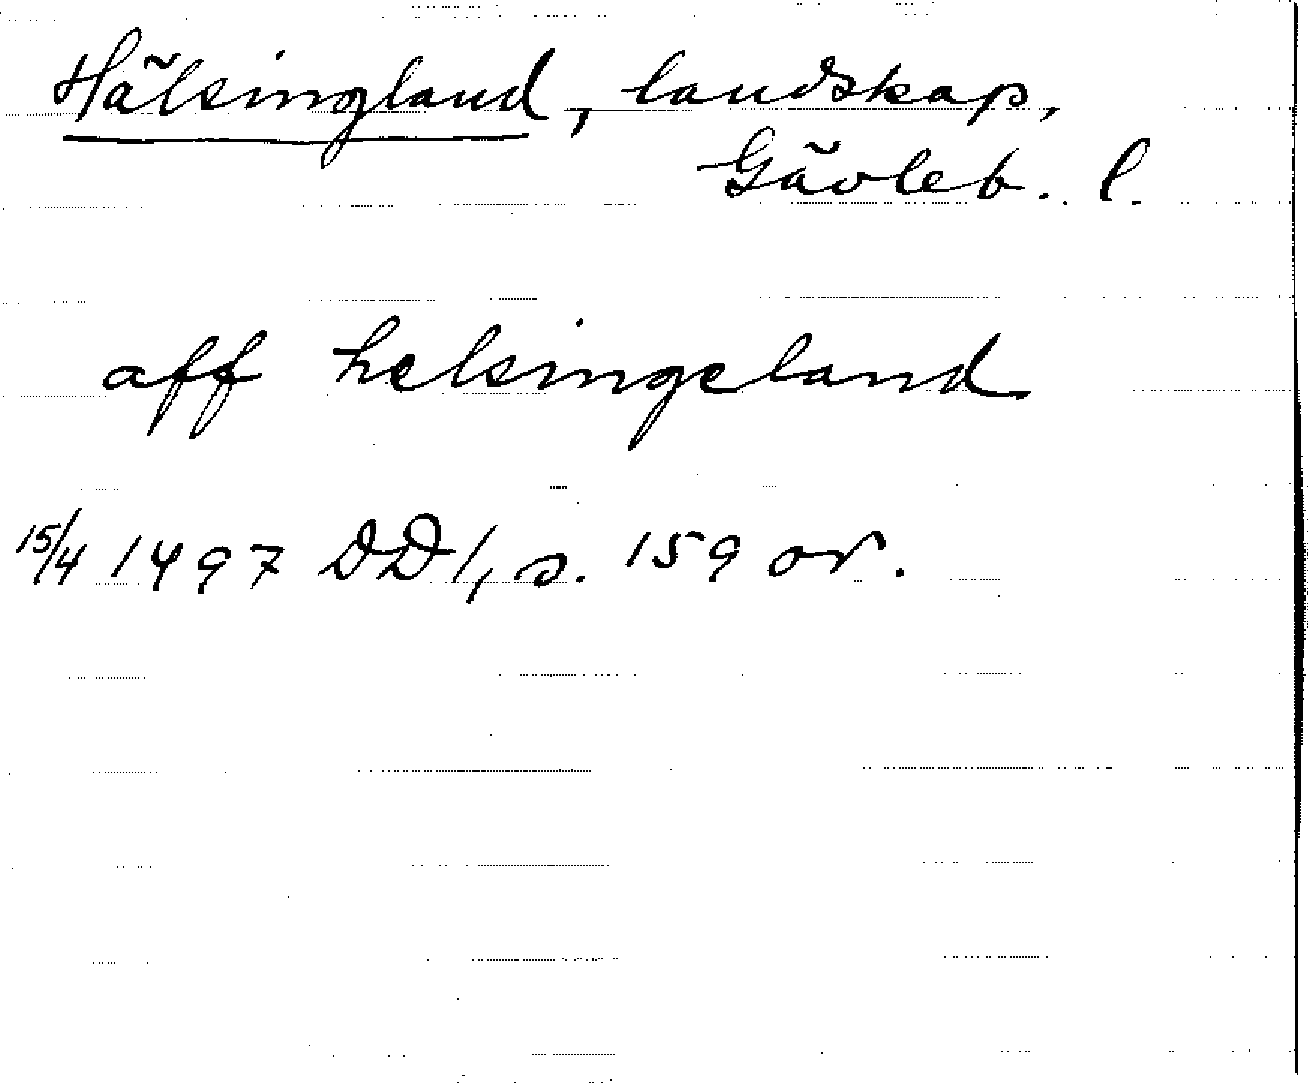 Hälsingland, landskap,
Gävleb. l.
aff helsingeland
15/4 1497 DD 1, s. 159 or.